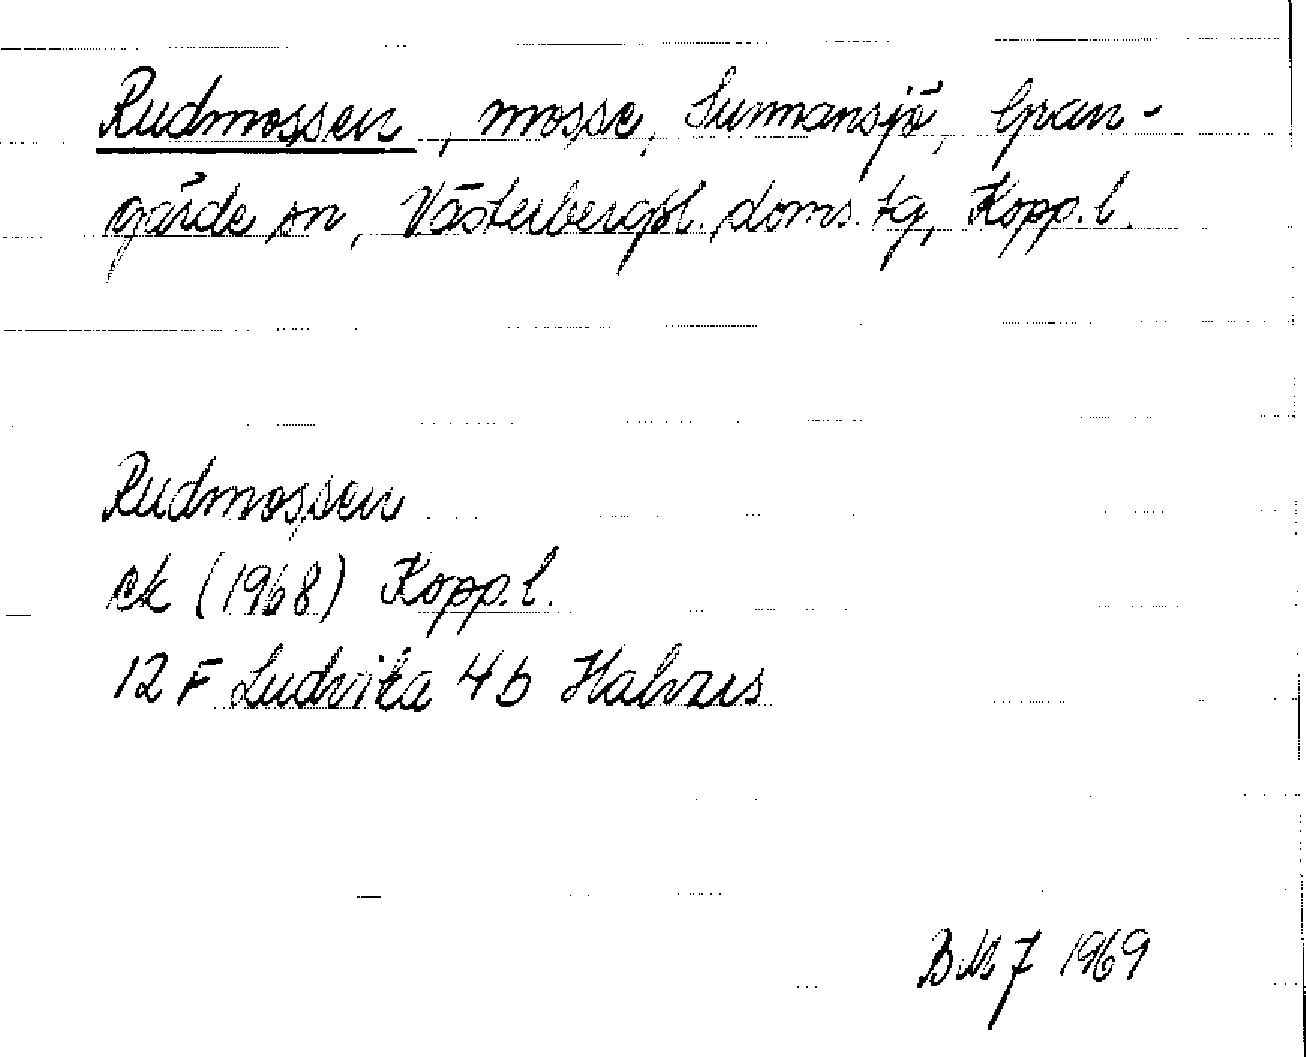 Rudmossen, mosse, Sunnansjö, Gran-
gärde sn, Västerbergsl. doms. tg, Kopp. l.
Rudmossen
ek (1968) Kopp. l.
12 F Ludvika 4 b Halvars
1969